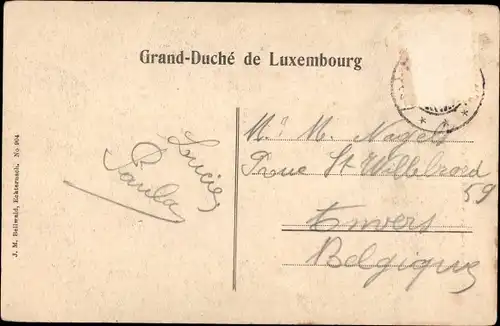 Grand-Duché de Luxembourg
Lucie
Paula
M. Nagels
rue St Willebrord
59
Anvers
Belgique
J. M. Bellwald, Echternach. No. 904